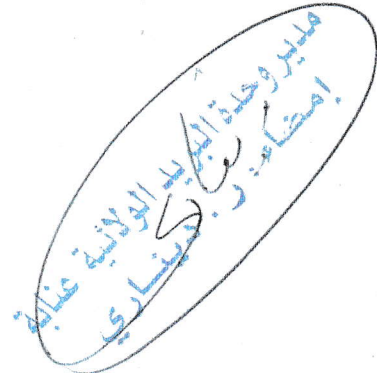 مدير وحدة البريد الولائية عنابة
إمضاء: ر. ديناري